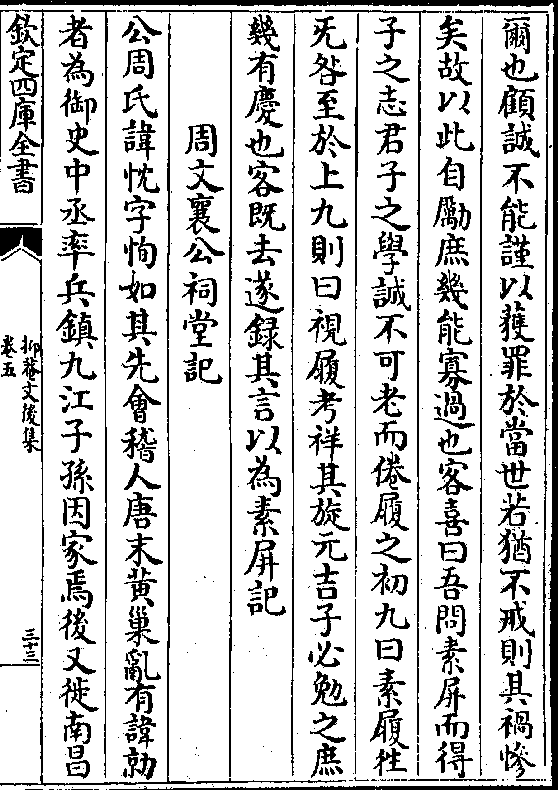 爾也顧誠不能謹以獲罪於當世若猶不戒則其禍慘
矣故以此自勵庶幾能寡過也客喜曰吾問素屏而得
子之志君子之學誠不可老而倦履之初九曰素履往
旡咎至於上九則曰視履考祥其旋元吉子必勉之庶
幾有慶也客既去遂録其言以為素屏記
周文襄公祠堂記
公周氏諱忱字恂如其先會稽人唐末黄巢亂有諱勍
者為御史中丞率兵鎮九江子孫因家焉後又徙南昌
欽定四庫全書
抑菴文後集
卷五
三十三